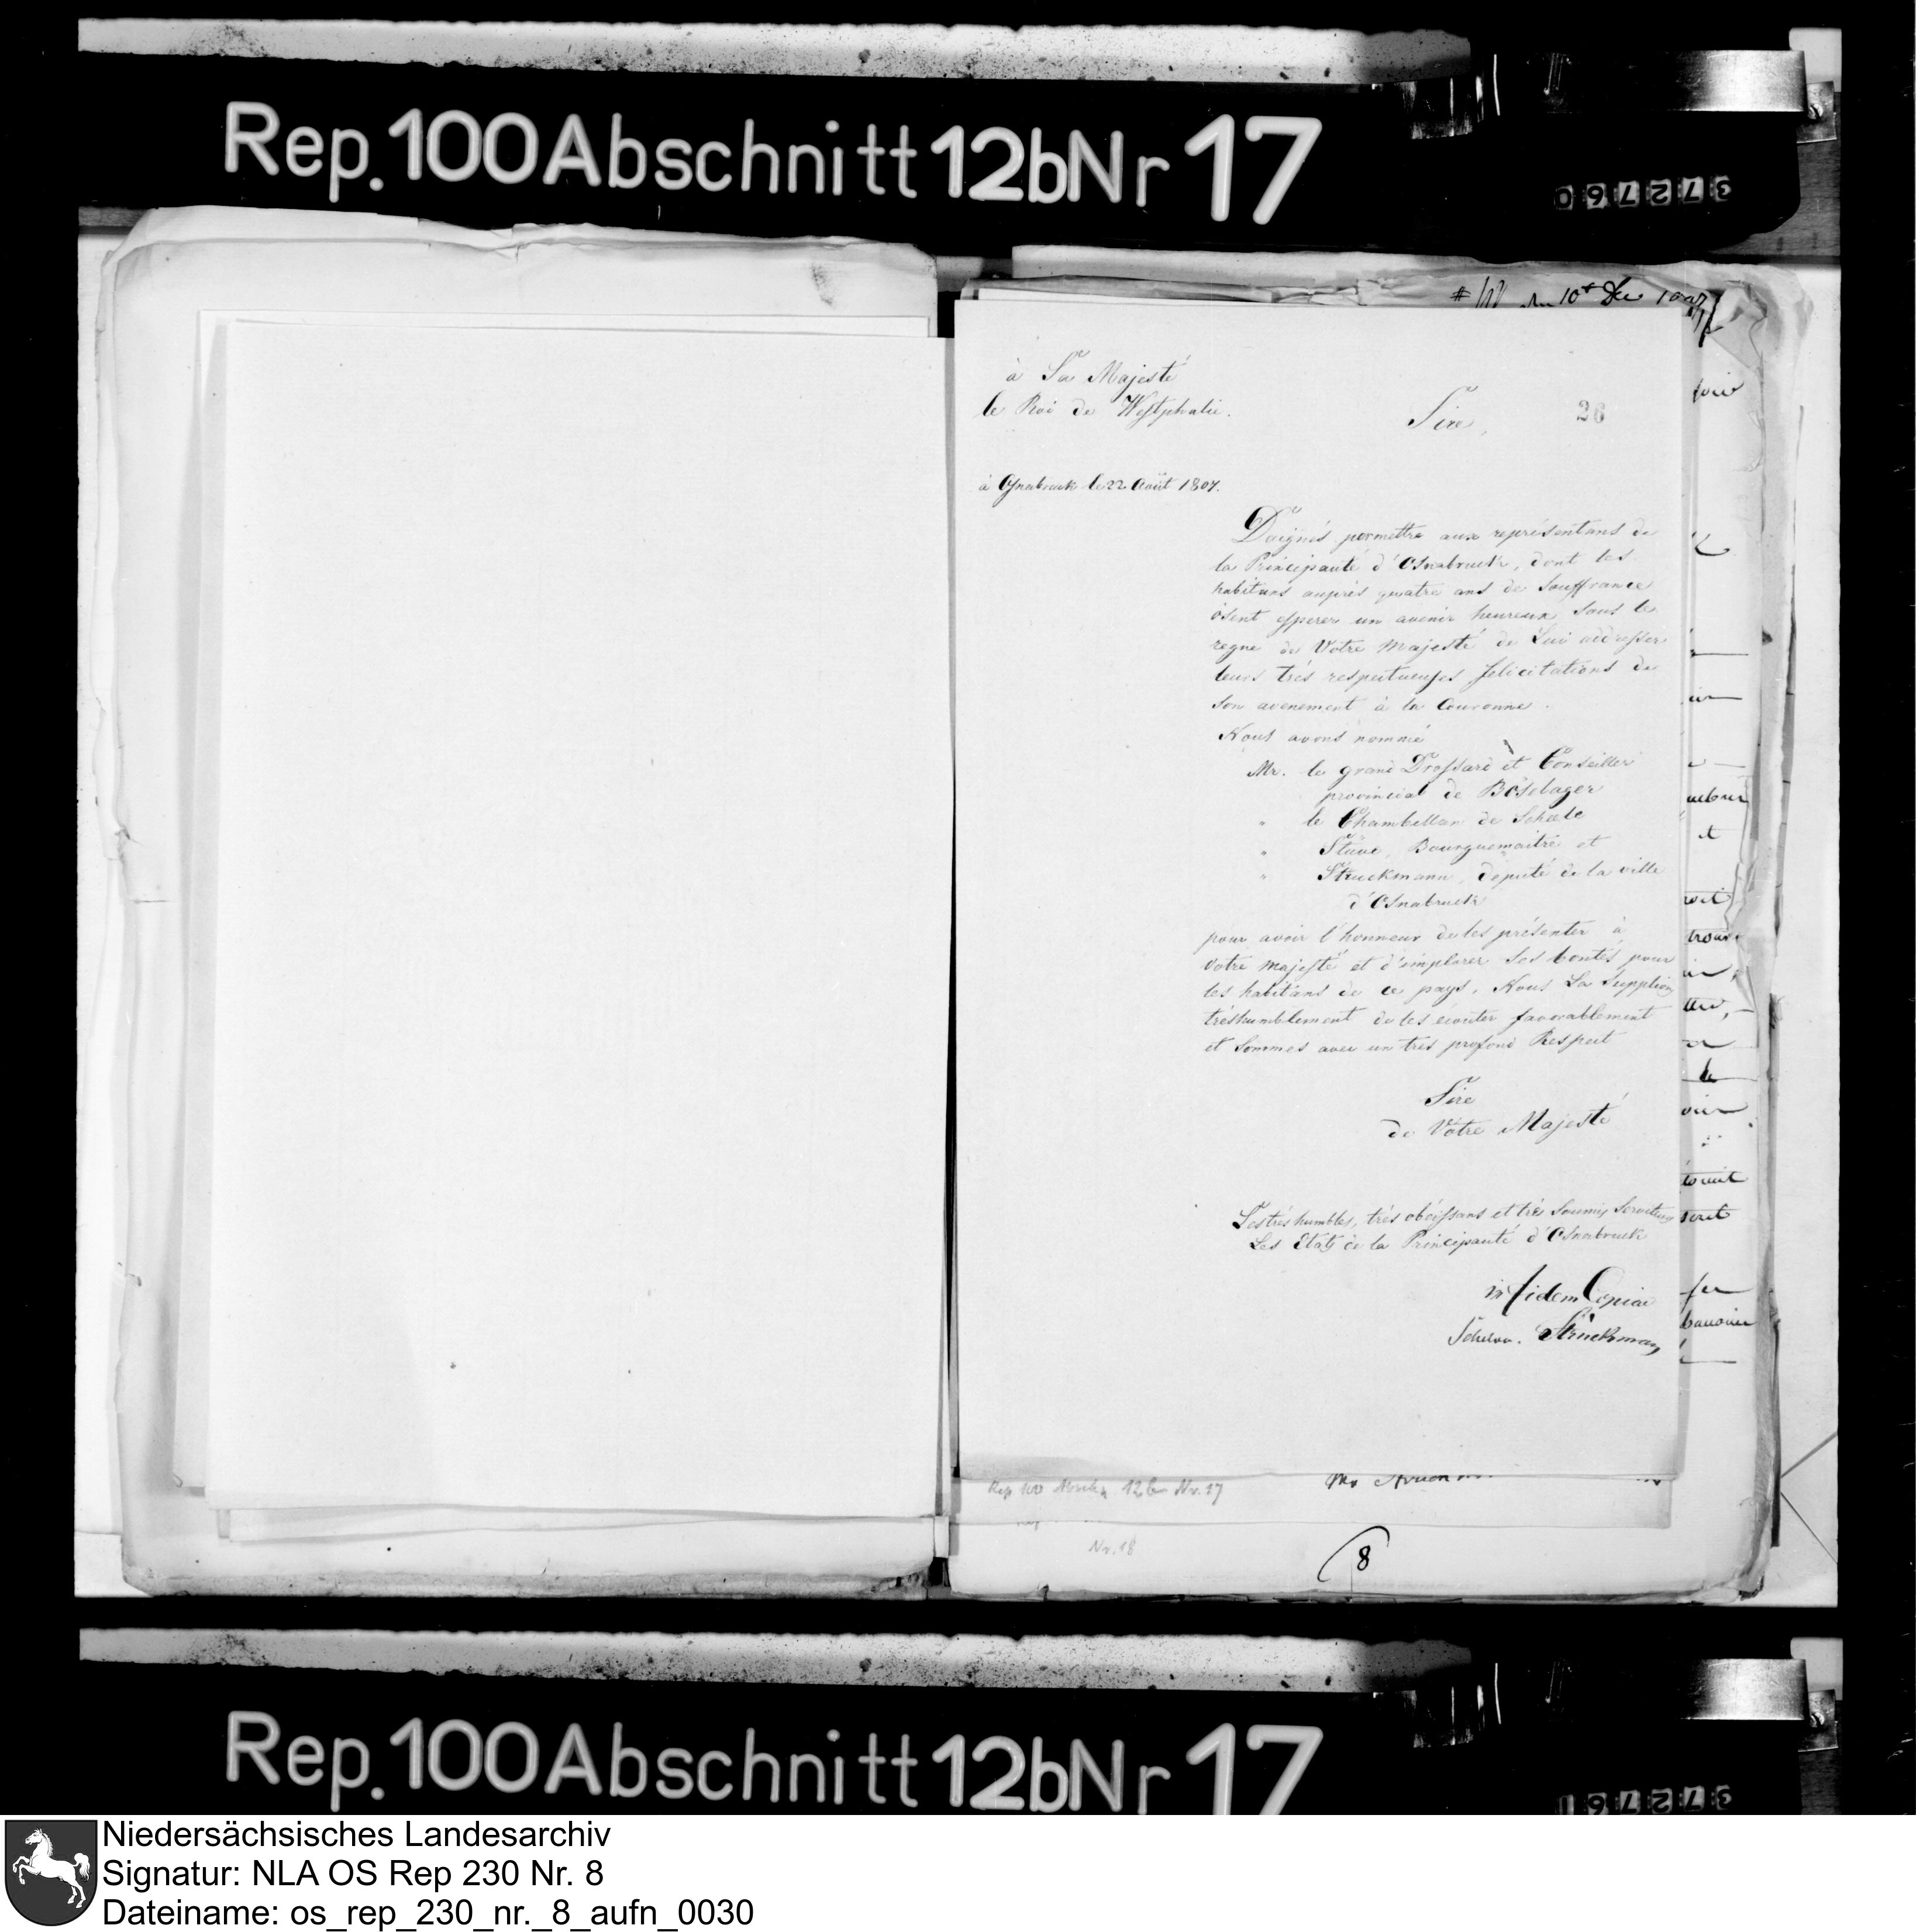 Rep. 100 Abschnitt 12b Nr 17
372760
10t Dec
à Sa Majesté
le Roi de Westphalie.
Sire,
26
à Osnabruck le 22 Août 1807.
Daignés permettre aux représentans de
la Principauté d'Osnabruck, dont les
habitans auprès quatre ans de souffrance
òsent esperer un avenir heureux sous le
regne de Votre Majesté de Lui addresser
leurs très respectueuses felicitations de
son avenement à la Couronne.
Nous avons nommé
Mr. le grand Drossard et Conseiller
provincial de Böselager
" le Chambellan de Schele
" Stüve, Bourguemaitre et
" Struckmann, députe de la ville
d'Osnabruck
pour avoir l'honneur de les présenter à
Votre Majesté et d'implorer Ses bontés pour
les habitans de ce pays. Nous La supplions
trèshumblement de les écouter favorablement
et sommes avec un très profond Respect
Sire
de Vôtre Majesté
Les très humbles, très obéissans et très soumis serviteurs
Les Etats de la Principauté d'Osnabruck
in fidem Copiae
Struckmann
Rep 100 Abschn 12b Nr. 17
Nr. 18
8
Rep. 100 Abschnitt 12b Nr 17
372761
Niedersächsisches Landesarchiv
Signatur: NLA OS Rep 230 Nr. 8
Dateiname: os_rep_230_nr._8_aufn_0030